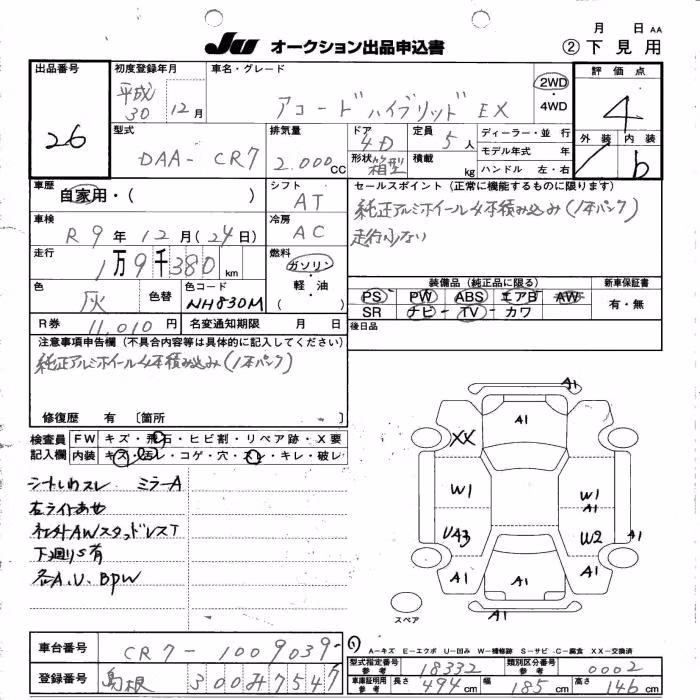 月 日 AA
JU オークション出品申込書 ② 下見用
出品番号 26
初度登録年月 平成 30 12月
車名・グレード アコードハイブリッド EX
2WD・4WD
評価点 4
外装 内装 b
型式 DAA-CR7
排気量 2.000cc
ドア 4D 形状 箱型
定員 5人
積載 kg
ディーラー・並行
モデル年式 年
ハンドル 左・右
車歴 自家用・( )
シフト AT
車検 R9年12月(24日)
冷房 AC
走行 1万9千380km
燃料 ガソリン・軽油 ( )
色 灰 色替
色コード NH830M
R券 11,010円
名変通知期限 月 日
セールスポイント (正常に機能するものに限ります)
純正アルミホイール4本積み込み(1本パンク)
走行少ない
装備品 (純正品に限る)
PS PW ABS エアB AW
SR ナビ TV カワ
新車保証書 有・無
後日品
注意事項申告欄 (不具合内容等は具体的に記入してください)
純正アルミホイール4本積み込み(1本パンク)
修復歴 有 〔箇所 〕
検査員記入欄
FW キズ・飛石・ヒビ割・リペア跡・X要
内装 キズ・汚レ・コゲ・穴・スレ・キレ・破レ
シートしわスレ ミラーA
左ライトあせ
社外AWスタッドレスT
下廻りS有
各A.U.BPW
A1
A1
XX
W1 W1
A1
UA3 W2 A1
A1 A1 A1
A1
スペア
A-キズ E-エクボ U-凹み W-補修跡 S-サビ C-腐食 XX-交換済
車台番号 CR7-1009039
登録番号 島根 300 7547
型式指定番号 参考 18332
類別区分番号 参考 0002
車庫証明用 参考 長さ 494cm 幅 185cm 高さ 146cm